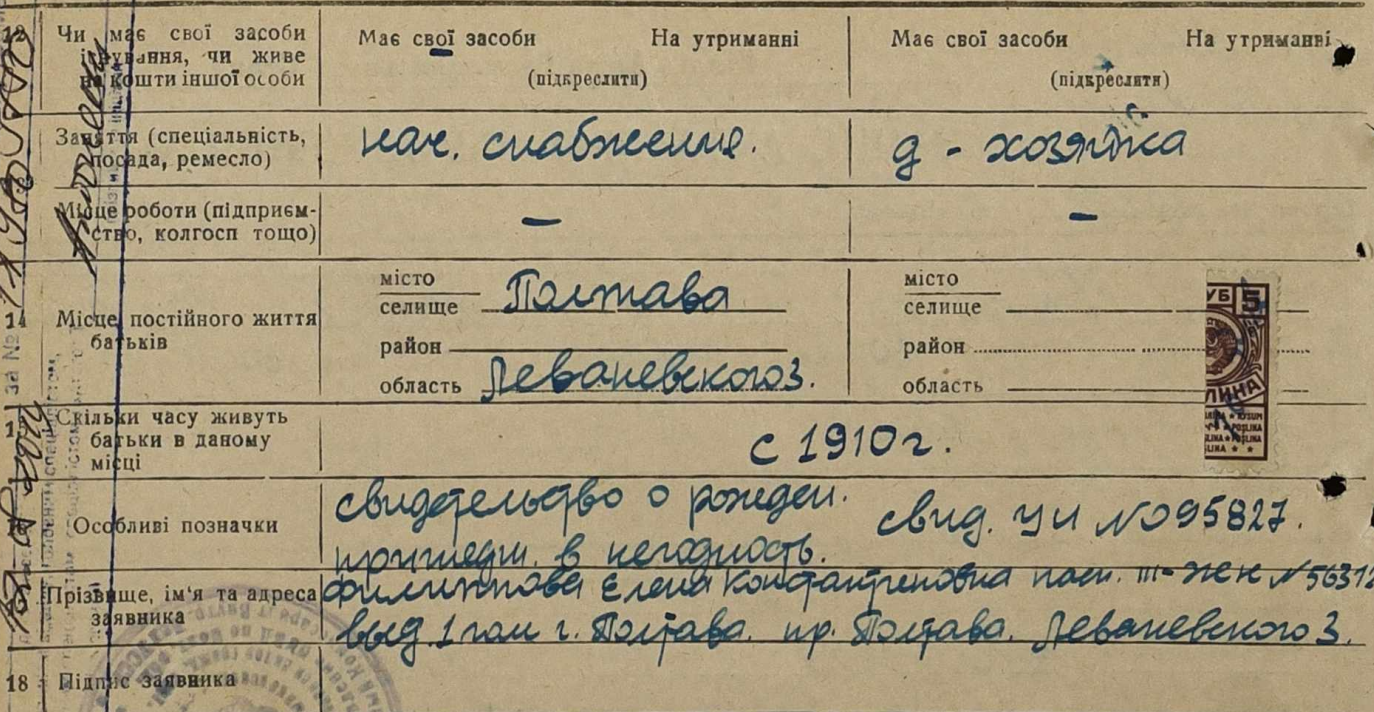 12 Чи має свої засоби
існування, чи живе
на кошти іншої особи
Має свої засоби На утриманні
(підкреслити)
Має свої засоби На утриманні
(підкреслити)
Заняття (спеціальність,
посада, ремесло)
нач. снабжения.
д - хозяйка
Місце роботи (підприєм-
ство, колгосп тощо)
—
—
14 Місце постійного життя
батьків
місто
селище Полтава
район
область Леваневского 3.
місто
селище
район
область
УБ 5
Скільки часу живуть
батьки в даному
місці
с 1910 г.
Особливі позначки
свидетельство о рожден.
пришедш. в негодность.
свид. УИ № 095827.
Прізвище, ім'я та адреса
заявника
Филиппова Елена Константиновна пасп. III-ЖЕН № 56312
выд. 1 гом г. Полтава. пр. Полтава. Леваневского 3.
18 Підпис заявника
за №